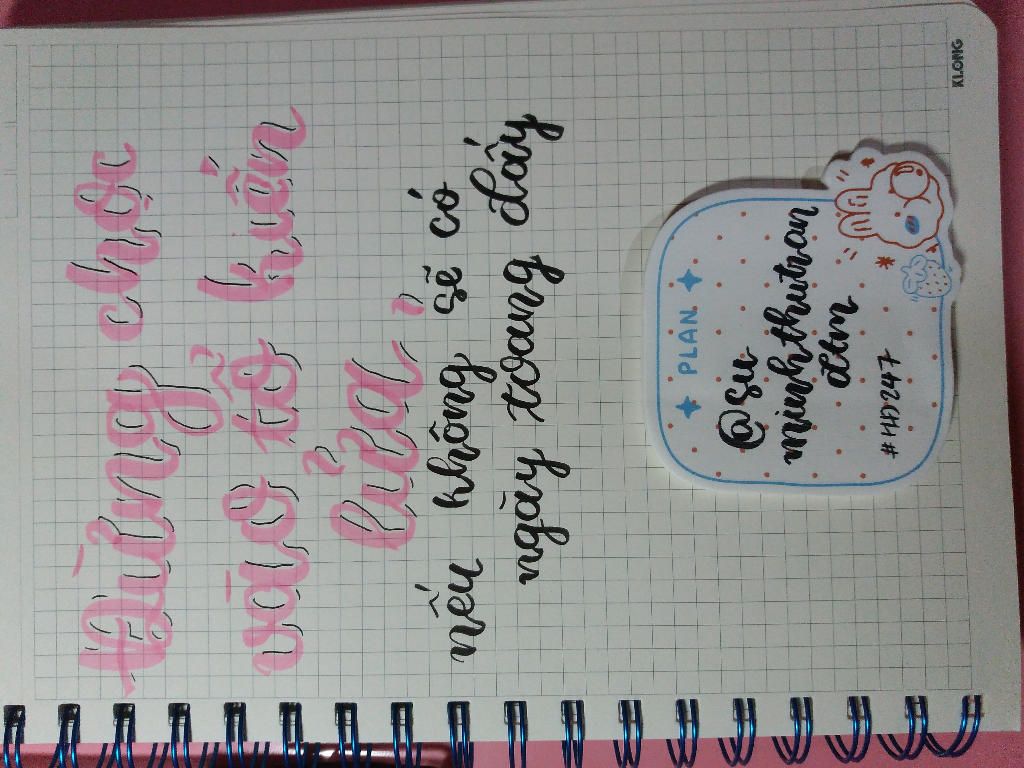 Đừng chọc
vào tổ kiến
lửa !
nếu không sẽ có
ngày toang đấy
PLAN
@su
minhthutran
dlm
#HD247
KLONG